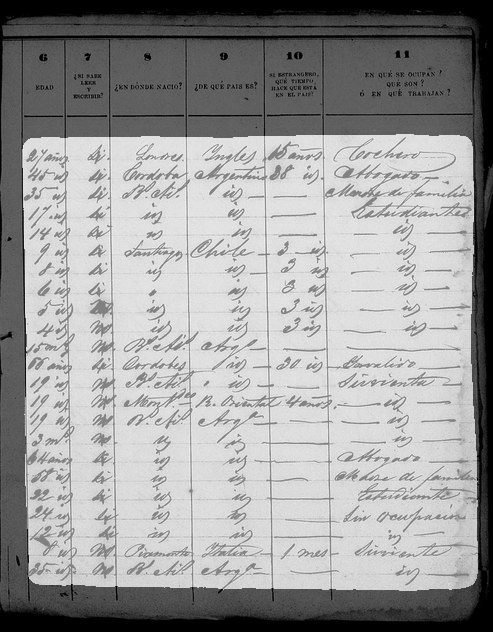 6 7 8 9 10 11
EDAD ¿SI SABE LEER Y ESCRIBIR? ¿EN DÓNDE NACIÓ? ¿DE QUÉ PAIS ES? SI ESTRANGERO, QUÉ TIEMPO HACE QUE ESTÁ EN EL PAIS? EN QUÉ SE OCUPAN? QUÉ SON? Ó EN QUÉ TRABAJAN?
27 años Si Londres Ingles 15 años Cochero
45 id Si Cordoba Argentino 28 id Abogado
35 id Si Bs. As. id — Madre de familia
17 id Si id id — Estudiantes
14 id Si id id — id
9 id Si Santiago Chile 3 id — id
8 id Si id id 3 id — id
6 id Si id 3 id — id
5 id id id 3 id — id
4 id No id id 3 id — id
15 ms No Bs. As. Arga —
Si Cordobes id 30 id
19 id No Bs. As. id — Sirvienta
19 id No R. Oriental 4 años — id
19 id No Bs. As. Arga — id
3 ms No id id — id
64 años Si id id — Abogado
id Si id id — Madre de familia
22 id Si id id — Estudiante
24 id Si id id — Sin ocupacion
12 id Si id id — id
id No Piamonte Italia 1 mes Sirviente
25 id No Bs. As. Arga — id